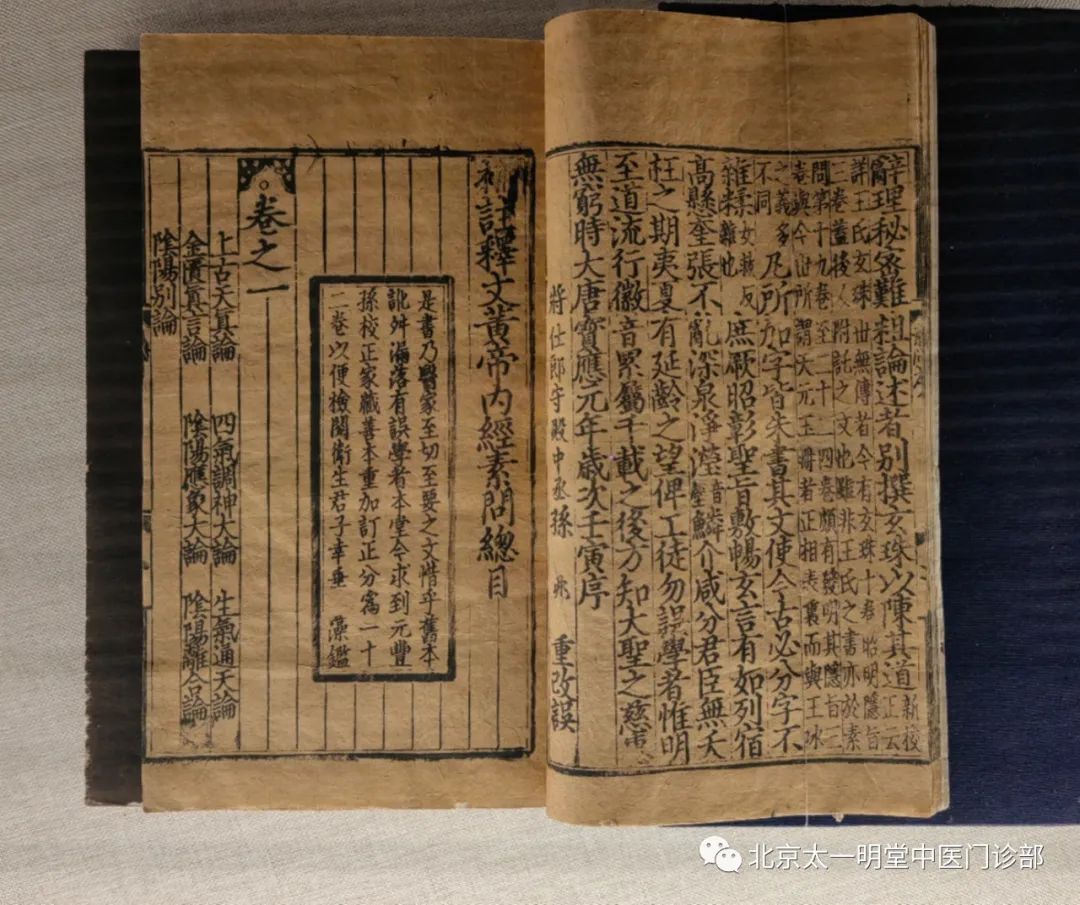 辭理秘密難粗論述者別撰玄珠以陳其道新校正云
詳王氏玄珠世無傳者今有玄珠十卷昭明隱旨
三卷蓋後人附託之文也雖非王氏之書亦於素
問第十九卷至二十二四卷頗有發明其隱旨三
卷與今世所謂天元玉冊者正相表裏而與王冰
之義多不同乃所加字皆朱書其文使今古必分字不
雜糅女救反雜也庶厥昭彰聖旨敷暢玄言有如列宿
高懸奎張不亂深泉淨瀅音瑩鱗介咸分君臣無夭
枉之期夷夏有延齡之望俾工徒勿誤學者惟明
至道流行徽音累屬千載之後方知大聖之慈惠
無窮時大唐寶應元年歲次壬寅序
將仕郎守殿中丞孫 兆 重改誤
補註釋文黃帝內經素問總目
是書乃醫家至切至要之文惜乎舊本
訛舛漏落有誤學者本堂今求到元豐
孫校正家藏善本重加訂正分為一十
二卷以便檢閱衛生君子幸垂 藻鑑
卷之一
上古天真論 四氣調神大論 生氣通天論
金匱真言論 陰陽應象大論 陰陽離合論
陰陽別論
北京太一明堂中医门诊部